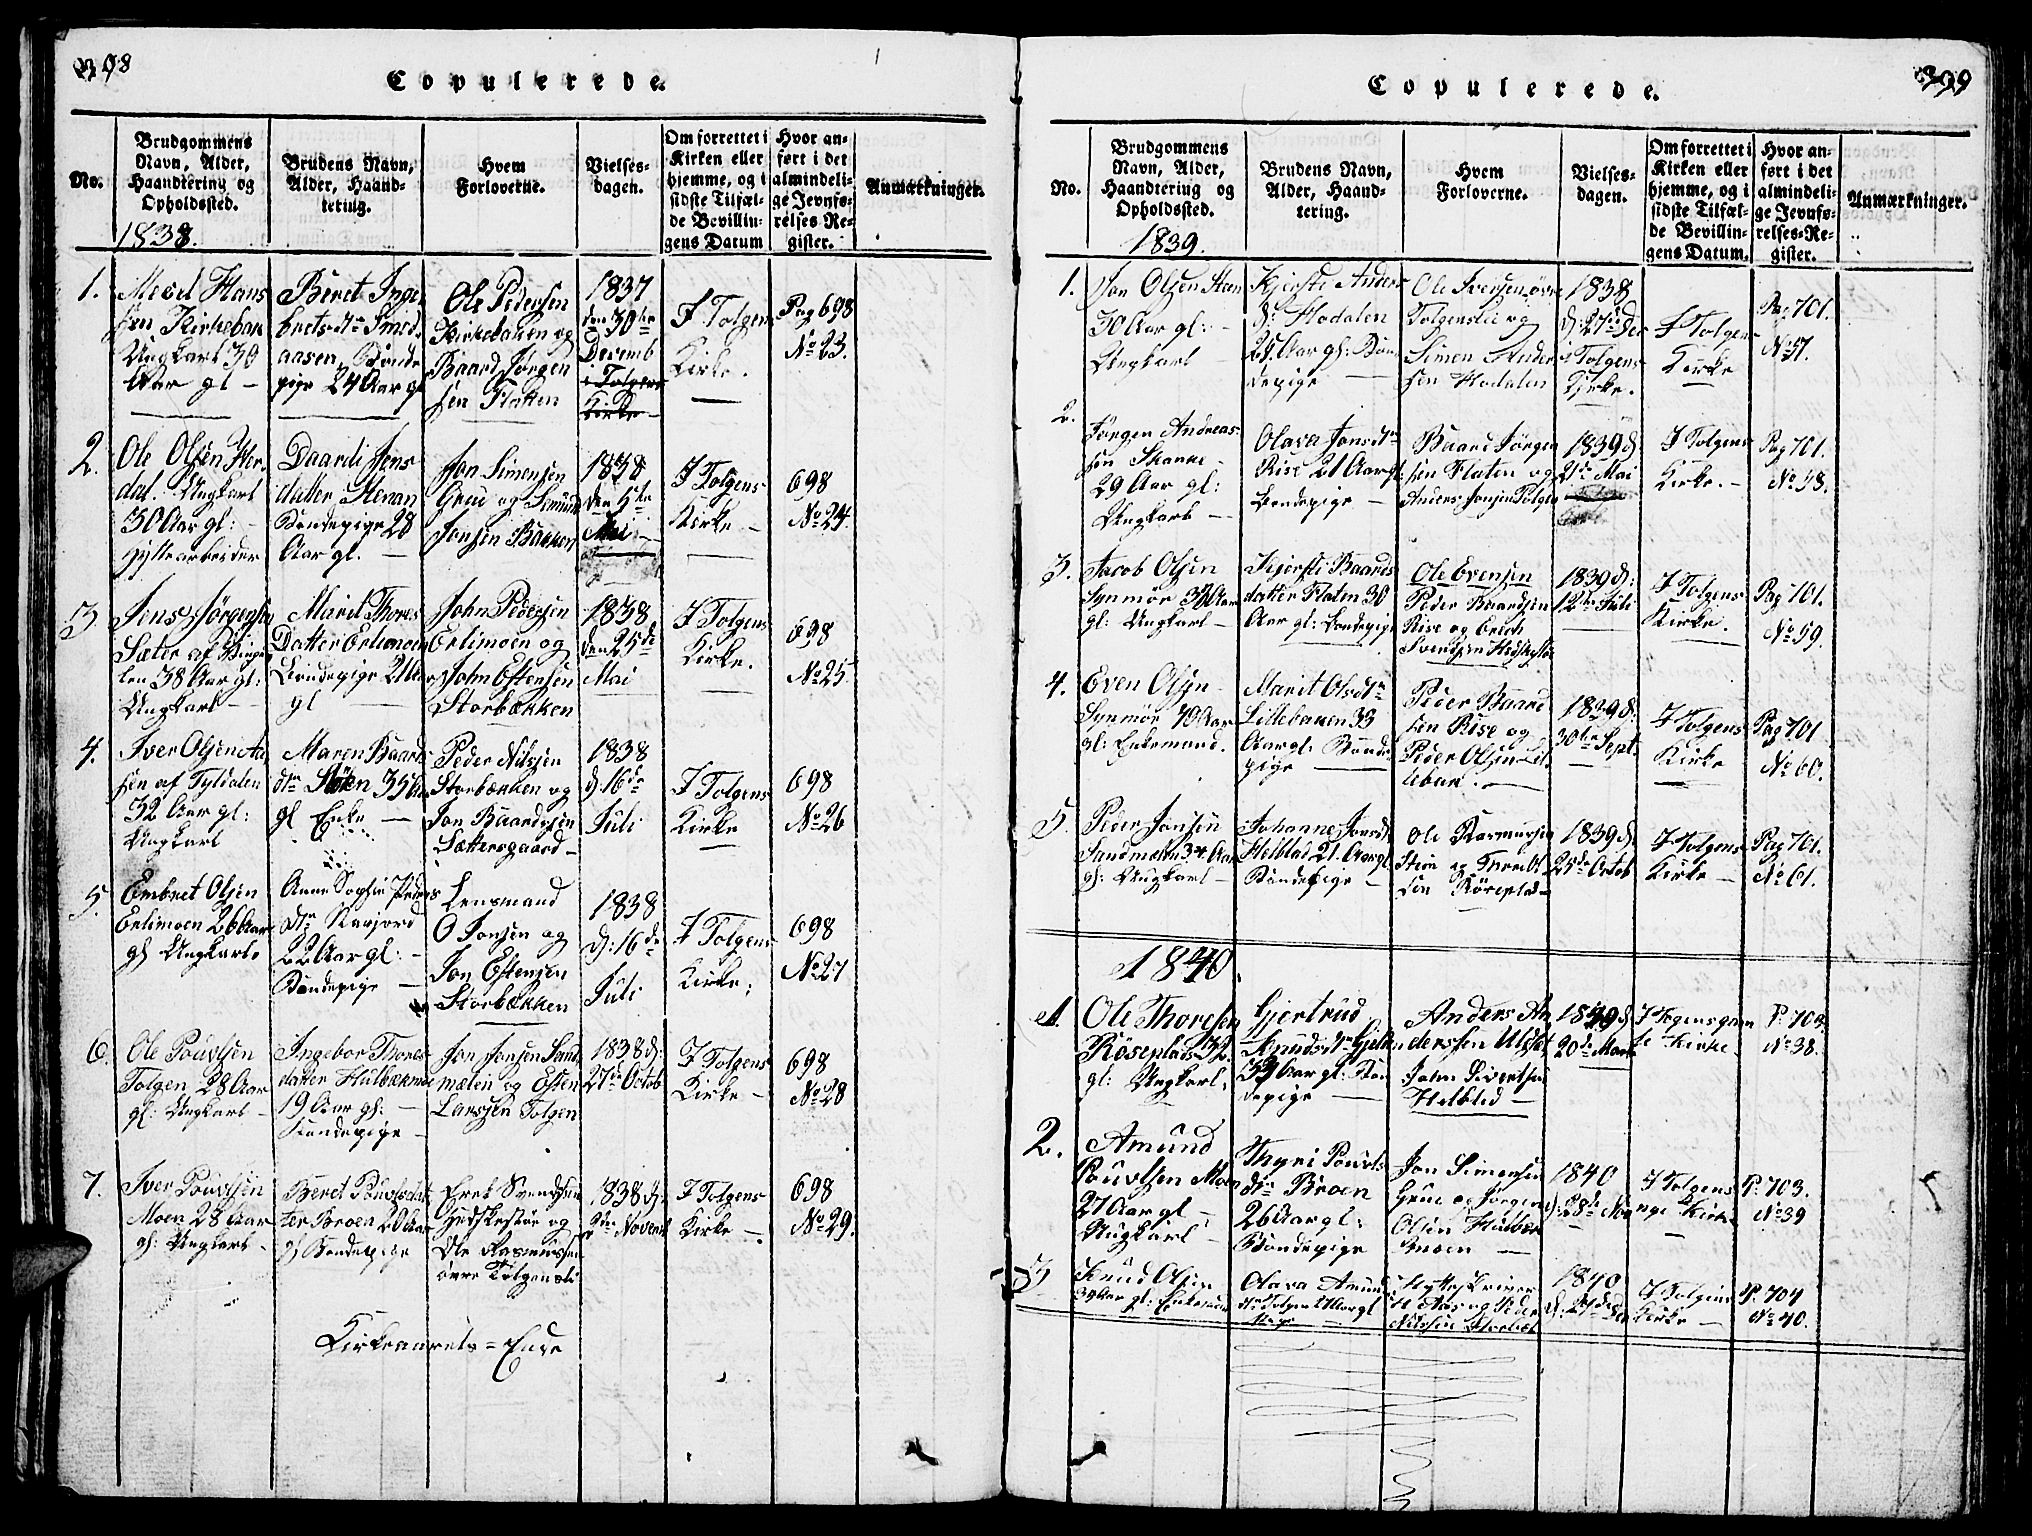 398
Copulerede.
No.
Brudgommens
Navn, Alder,
Haandtering og
Opholdssted.
1838.
Brudens Navn,
Alder, Haand-
tering.
Hvem
Forloverne.
Vielses-
dagen.
Om forrettet i
Kirken eller
hjemme, og i
sidste Tilfæl-
de Bevillin-
gens Datum
Hvor an-
ført i det
almindeli-
ge Jevnfø-
relses-Re-
gister.
Anmærkninger.
1.
Hans
sen Kirkebak
Ungkarl 30
Aar gl
Beret Inge
bretsdtr Smed
aasen Bonde
pige 24 Aar gl
Ole Pedersen
Kirkebakken og
Baard Jørgen
sen Flatten
1837
den 30te
Decemb
i Tolgens
Kirke
I Tolgens
Kirke.
Pag 698
No 23.
2.
Ole Olsen
dal. Ungkarl
30 Aar gl:
Hyttearbeider
Jens
datter
Bondepige 28
Aar gl.
Jon Simensen
Grue og
Jonsen Bakken
1838
den 5te
Mai
I Tolgens
Kirke
698
No 24.
3
Jens Jørgensen
Sæter af
38 Aar gl:
Ungkarl
Marit Thores
Datter Erlimoen
Bondepige
gl
John Pedersen
Erlimoen og
John Estensen
Storbækken
1838
den 25de
Mai
I Tolgens
Kirke.
698
No 25
4.
Iver Olsen
sen af Tyldalen
32 Aar gl:
Ungkarl
Maren Baards
dtr Støen 35 Aar
gl Enke
Peder Nilsen
Storbækken og
Jon Baardsen
Sættersgaard
1838
d: 16de
Juli
I Tolgens
Kirke
698
No 26
5.
Embret Olsen
Erlimoen 26 Aar
gl Ungkarl
Anne Sophie Peders
dtr
22 Aar gl:
Bondepige
Lensmand
O Jonsen og
Jon Estensen
Storbækken
1838
d: 16de
Juli
I Tolgens
Kirke.
698
No 27
6.
Ole Pouvlsen
Tolgen 28 Aar
gl: Ungkarl
Ingebor Thores
datter Hulbækmoe
19 Aar gl:
Bondepige
Jon Jonsen Sand
mælen og Esten
Larsen Tolgen
1838 d:
27de Octob
I Tolgens
Kirke
698
No 28
7.
Iver Pouvlsen
Moen 28 Aar
gl: Ungkarl
Beret Pouvlsdat
ter Broen 20 Aar
gl Bondepige
Erik Svendsen
Hedskestøe og
Ole Rasmussen
øvre Tolgensli
1838 d:
2den Novemb
I Tolgens
Kirke
698
No 29.
Kirkeaarets = Ende
399
Copulerede.
No.
Brudgommens
Navn, Alder,
Haandtering og
Opholdssted.
1839.
Brudens Navn,
Alder, Haand-
tering.
Hvem
Forloverne.
Vielses-
dagen.
Om forrettet i
Kirken eller
hjemme, og i
sidste Tilfæl-
de Bevillin-
gens Datum.
Hvor an-
ført i det
almindeli-
ge Jevnfø-
relses-Re-
gister.
Anmærkninger.
1.
Jon Olsen
30 Aar gl:
Ungkarl
Kjersti Anders
dr Hodalen
Aar gl: Bon
depige
Ole Iversen øvre
Tolgenslie og
Simen Ander
sen Hodalen
1838
d: 27de Dec
i Tolgens
Kirke.
I Tolgens
Kirke
Pag 701.
No 57.
2.
Jørgen Andreas
sen Skanke
29 Aar gl:
Ungkarl
Olava Jonsdtr
Riise 21 Aar gl:
Bondepige
Baard Jørgen
sen Flaten og
Anders Jonsen Tolgen
1839 d:
2den Mai
I Tolgens
Kirke.
Pag 701.
No 58.
3.
Jacob Olsen
Synmør 38 Aar
gl: Ungkarl
Kjersti Baards
datter Flaten 30
Aar gl: Bondepige
Ole Evensen
Peder Baardsen
Riise og Erich
Svendsen
1839 d:
12te Juli
I Tolgens
Kirke.
Pag 701.
No 59.
4.
Even Olsen
Synmør 70 Aar
gl: Enkemand.
Marit Olsdtr
Lillebakken 33
Aar gl: Bonde
pige
Peder Baard
sen Riise og
Peder Olsen Lil
lebak.
1839 d:
30te Sept.
I Tolgens
Kirke
Pag 701
No 60.
5.
Peder Jonsen
Sandmælen 34 Aar
gl: Ungkarl
Johanne Jonsd
Helblad 21 Aar gl
Bondepige
Ole Rasmussen
og Thore Ol
sen Røseplads
1839 d:
25de Octob
I Tolgens
Kirke
Pag 701.
No 61.
1840.
1.
Ole Thoresen
Røseplads 32
gl: Ungkarl.
Gjertrud
Amundsdtr
33 Aar gl: Bon
depige
Anders An
derssen Utset
John Sivertsen
Helblad
1840 d:
20de Marts
I
Kirke.
P: 703
No 38.
2.
Amund
Pouvlsen Moen
27 Aar gl
Ungkarl
Thyri Pouvls
dtr Broen
26 Aar gl:
Bondepige
Jon Simensen
Grue og Jørgen
Olsen Hulbæk
moen
1840
d: 28de Mai
I Tolgens
Kirke
P: 703.
No 39
3
Knud Olsen
39 Aar gl: Enkemand
Olava Amunds
dtr Tolgen Aar gl
Pige
Hytteskriver
Aas og Peder
Nilssen Storbæk
1840
d: 27de Dec
I Tolgens
Kirke
P: 704
No 40.